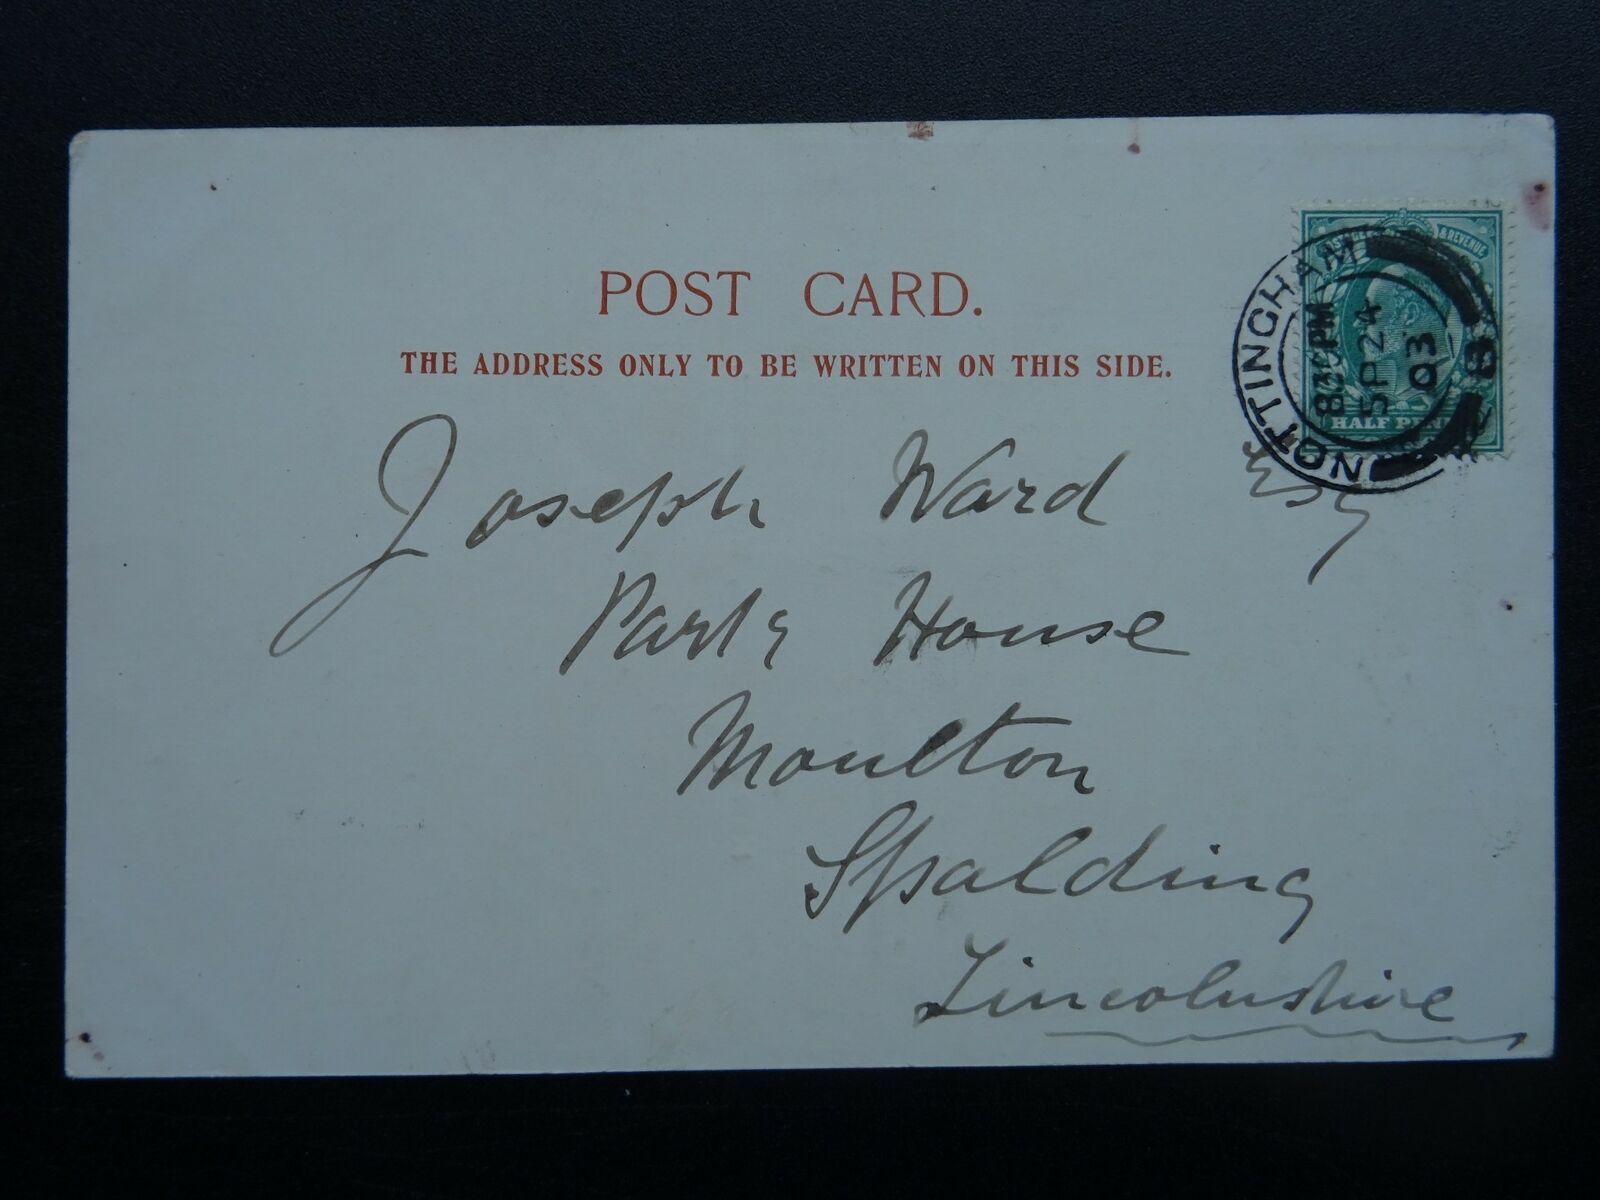 POST CARD.
THE ADDRESS ONLY TO BE WRITTEN ON THIS SIDE.
& REVENUE
HALF PEN
NOTTINGHAM
PM
SP 24
03
Joseph Ward Esq
Park House
Moulton
Spalding
Lincolnshire